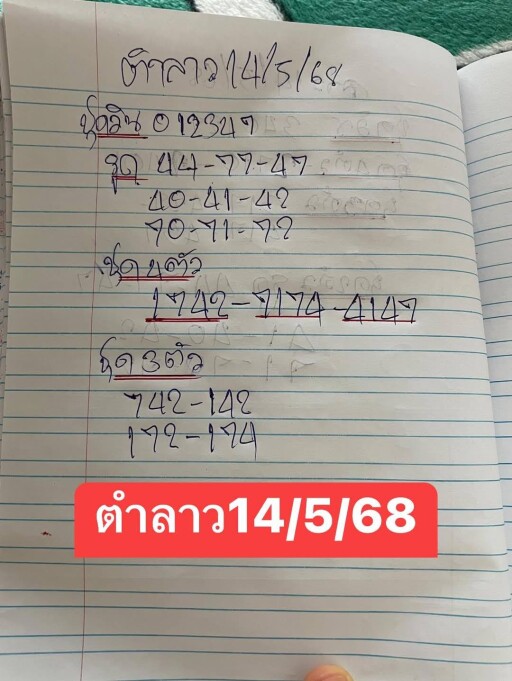 ตำลาว 14/5/68
ชุดวิน 012347
รูด 44-77-47
40-41-42
70-71-72
ชุด 4 ตัว
1742-7174-4147
ชุด 3 ตัว
742-142
172-174
ตำลาว14/5/68